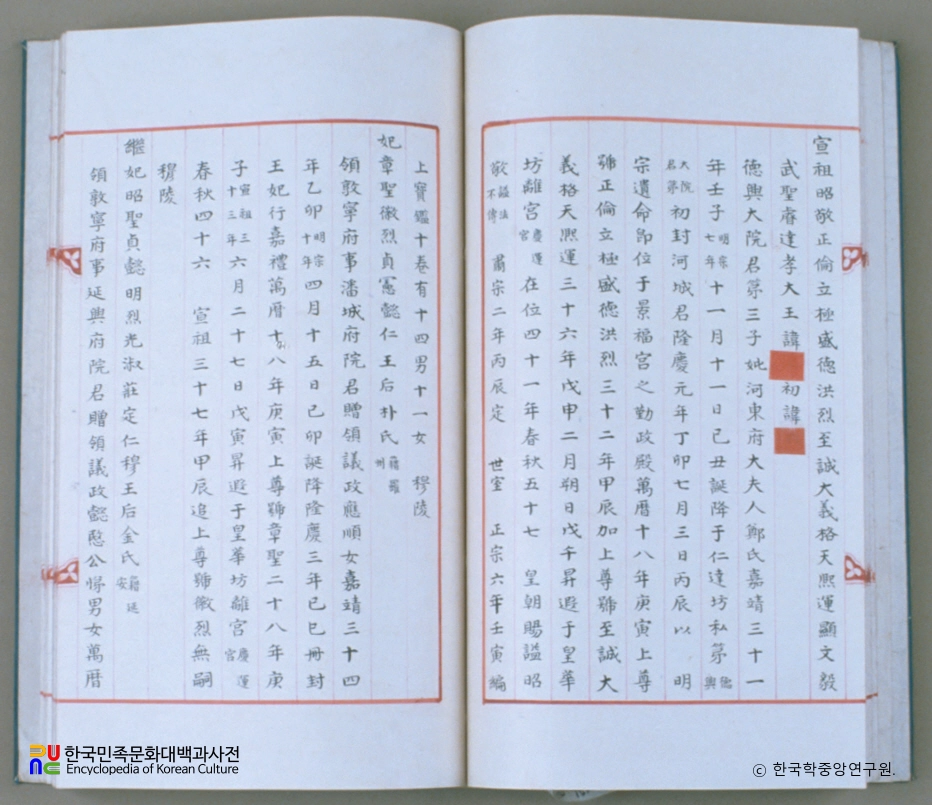 宣祖昭敬正倫立極盛德洪烈至誠大義格天熙運顯文毅
武聖睿達孝大王諱 初諱
德興大院君第三子妣河東府大夫人鄭氏嘉靖三十一
年壬子明宗七年十一月十一日己丑誕降于仁達坊私第
大院君第 初封河城君隆慶元年丁卯七月三日丙辰以 明
宗遺命卽位于景福宮之勤政殿萬曆十八年庚寅上尊
號正倫立極盛德洪烈三十二年甲辰加上尊號至誠大
義格天熙運三十六年戊申二月朔日戊午昇遐于皇華
坊離宮慶運宮在位四十一年春秋五十七 皇朝賜謚昭
敬謚法不傳 肅宗二年丙辰定 世室 正宗六年壬寅編
上寶鑑十卷有十四男十一女 穆陵
妃章聖徽烈貞憲懿仁王后朴氏籍羅州
領敦寧府事潘城府院君贈領議政應順女嘉靖三十四
年乙卯明宗十年四月十五日己卯誕降隆慶三年己巳冊封
王妃行嘉禮萬曆十八年庚寅上尊號章聖二十八年庚
子宣祖三十三年六月二十七日戊寅昇遐于皇華坊離宮慶運宮
春秋四十六 宣祖三十七年甲辰追上尊號徽烈無嗣
穆陵
繼妃昭聖貞懿明烈光淑莊定仁穆王后金氏籍延安
領敦寧府事延興府院君贈領議政懿愍公悌男女萬曆
한국민족문화대백과사전
Encyclopedia of Korean Culture
ⓒ 한국학중앙연구원.